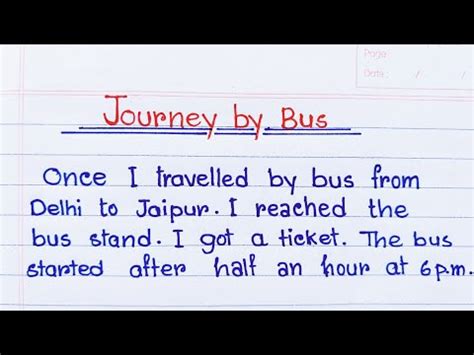 Page:
Date: / /
Journey by Bus
Once I travelled by bus from
Delhi to Jaipur. I reached the
bus stand. I got a ticket. The bus
started after half an hour at 6p.m.